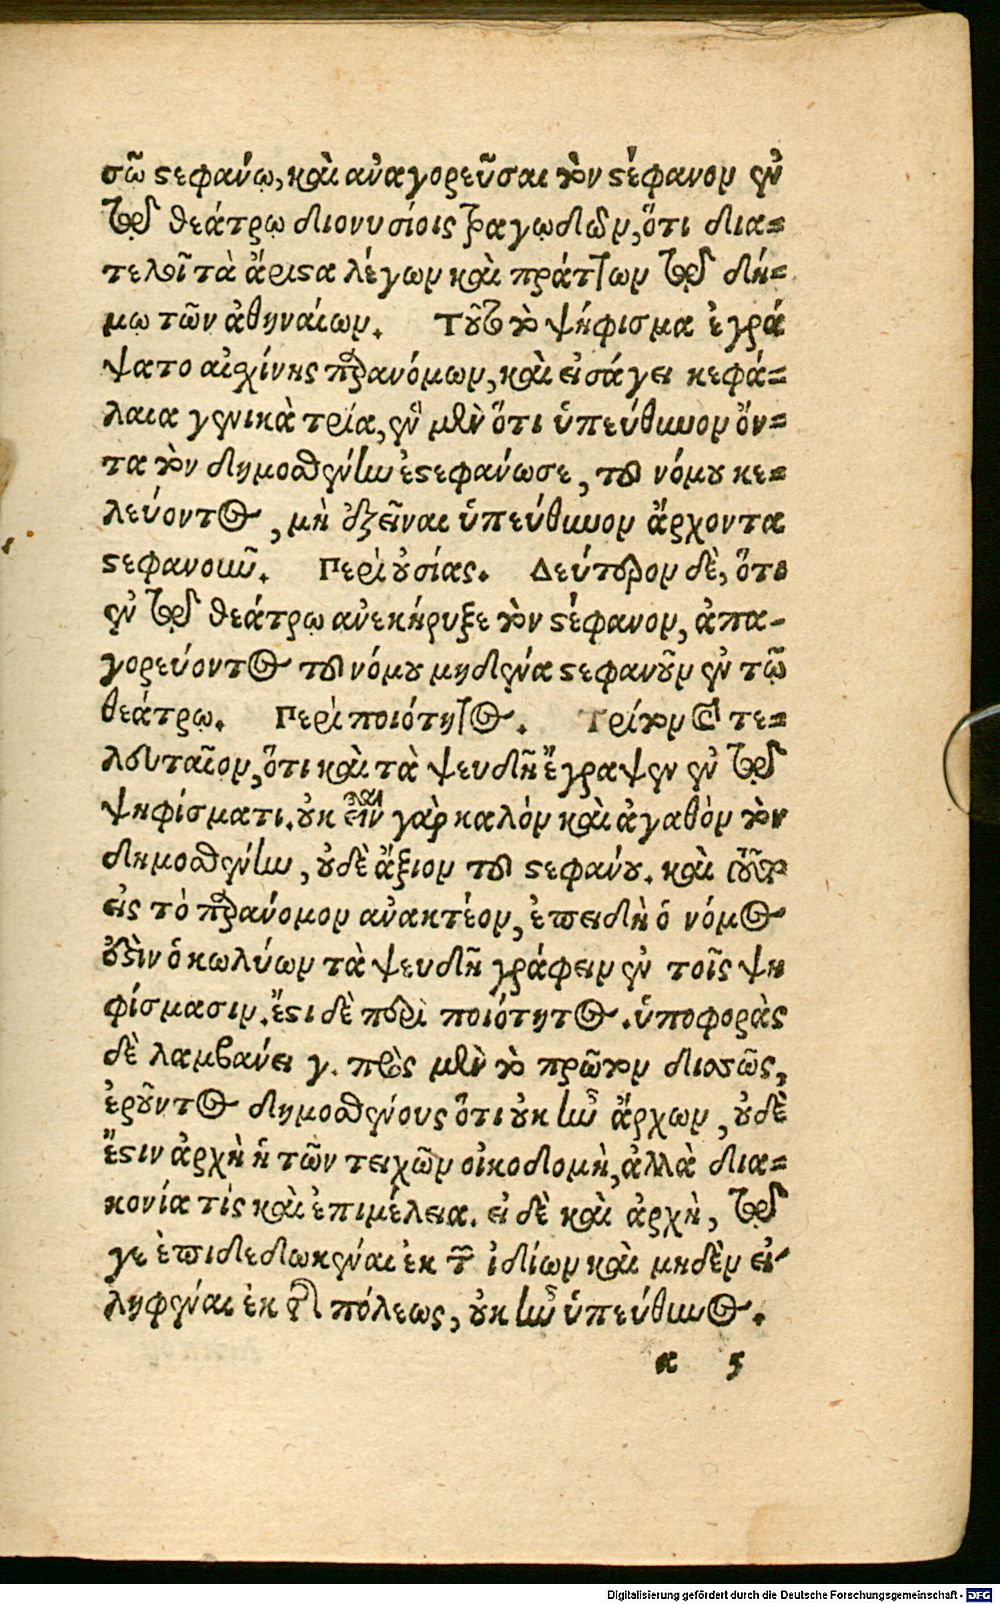 σῷ στεφάνῳ, καὶ ἀναγορεῦσαι τὸν στέφανον ἐν
τῷ θεάτρῳ διονυσίοις τραγῳδῶν, ὅτι δια-
τελεῖ τὰ ἄριστα λέγων καὶ πράττων τῷ δή-
μῳ τῶν ἀθηναίων. Τοῦτο τὸ ψήφισμα ἐγρά
ψατο αἰσχίνης παρανόμων, καὶ εἰσάγει κεφά-
λαια γενικὰ τρία, ἓν μὲν ὅτι ὑπεύθυνον ὄν-
τα τὸν δημοσθένην ἐστεφάνωσε, τοῦ νόμου κε-
λεύοντος, μὴ ἐξεῖναι ὑπεύθυνον ἄρχοντα
στεφανοῦν. Περὶ οὐσίας. Δεύτερον δὲ, ὅτι
ἐν τῷ θεάτρῳ ἀνεκήρυξε τὸν στέφανον, ἀπα-
γορεύοντος τοῦ νόμου μηδένα στεφανοῦν ἐν τῷ
θεάτρῳ. Περὶ ποιότητος. Τρίτον καὶ τε-
λευταῖον, ὅτι καὶ τὰ ψευδῆ ἔγραψεν ἐν τῷ
ψηφίσματι. οὐκ εἶναι γὰρ καλὸν καὶ ἀγαθὸν τὸν
δημοσθένην, οὐδὲ ἄξιον τοῦ στεφάνου. καὶ τοῦτο
εἰς τὸ παράνομον ἀνακτέον, ἐπειδὴ ὁ νόμος
ἐστὶν ὁ κωλύων τὰ ψευδῆ γράφειν ἐν τοῖς ψη
φίσμασιν. ἔστι δὲ περὶ ποιότητος. ὑποφορὰς
δὲ λαμβάνει γ. πρὸς μὲν τὸ πρῶτον δισσῶς,
ἐροῦντος δημοσθένους ὅτι οὐκ ἦν ἄρχων, οὐδὲ
ἔστιν ἀρχὴ ἡ τῶν τειχῶν οἰκοδομὴ, ἀλλὰ δια-
κονία τίς καὶ ἐπιμέλεια. εἰ δὲ καὶ ἀρχὴ, τῷ
γε ἐπιδεδωκέναι ἐκ τῶν ἰδίων καὶ μηδὲν εἰ-
ληφέναι ἐκ τῆς πόλεως, οὐκ ἦν ὑπεύθυνος.
κ 5
Digitalisierung gefördert durch die Deutsche Forschungsgemeinschaft - DFG